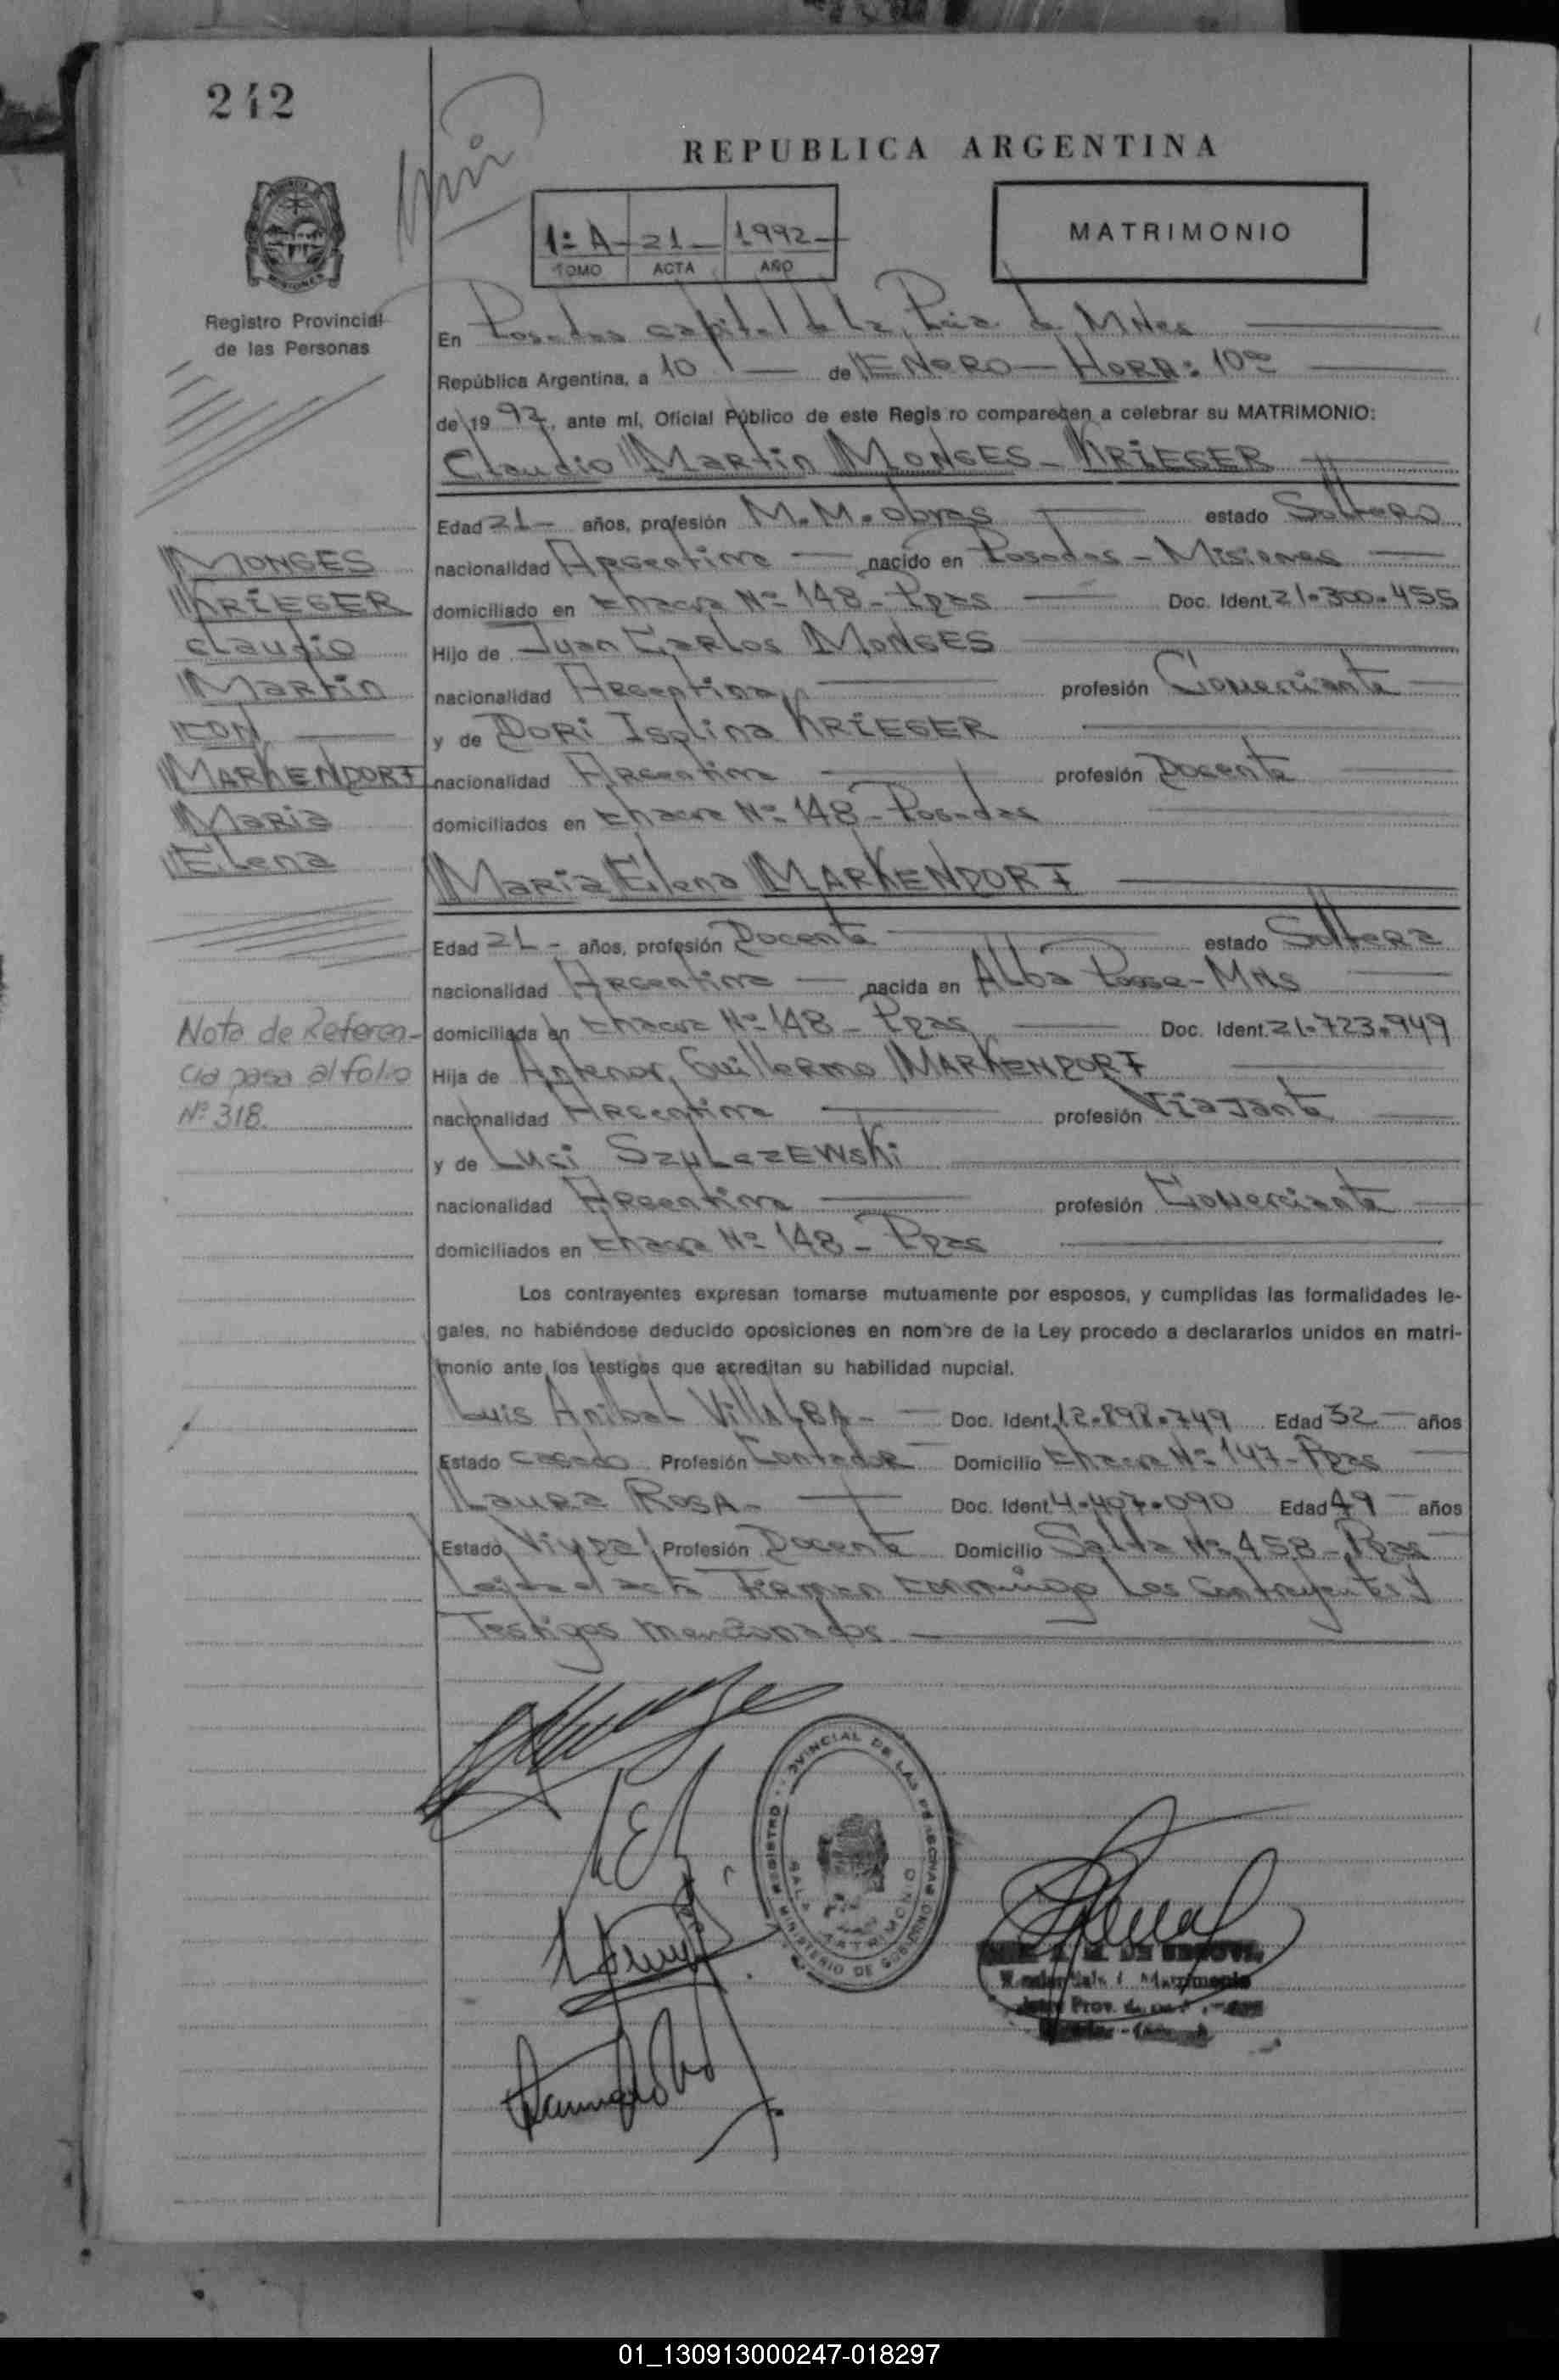 242
REPUBLICA ARGENTINA
1º A - 21 - 1992 -
TOMO ACTA AÑO
MATRIMONIO
Registro Provincial
de las Personas
En Posadas capital de la Pcia. de MNes
República Argentina, a 10 de ENERO - HORA: 10ºº
de 19 92, ante mí, Oficial Público de este Regis ro comparecen a celebrar su MATRIMONIO:
Claudio Martin MONGES - KRIEGER
Edad 21 - años, profesión M.M. obras estado Soltero
nacionalidad Argentina nacido en Posadas - Misiones
domiciliado en Chacra Nº 148 - Ppas Doc. Ident. 21.300.455
Hijo de Juan Carlos MONGES
nacionalidad Argentina profesión Comerciante
y de DORI Isolina KRIEGER
nacionalidad Argentina profesión Docente
domiciliados en Chacra Nº 148 - Posadas
Maria Elena MARKENDORF
Edad 21 - años, profesión Docente estado Soltera
nacionalidad Argentina nacida en Alba Posse - MNs
domiciliada en Chacra Nº 148 - Ppas Doc. Ident. 21.723.949
Hija de Antenor Guillermo MARKENDORF
nacionalidad Argentina profesión Viajante
y de Luci SZULCZEWSKI
nacionalidad Argentina profesión Comerciante
domiciliados en Chacra Nº 148 - Ppas
Los contrayentes expresan tomarse mutuamente por esposos, y cumplidas las formalidades le-
gales, no habiéndose deducido oposiciones en nombre de la Ley procedo a declararlos unidos en matri-
monio ante los testigos que acreditan su habilidad nupcial.
Luis Anibal VILLALBA - Doc. Ident. 12.898.749 Edad 32 años
Estado casado Profesión Contador Domicilio Chacra Nº 147 - Ppas
Laura ROSA - Doc. Ident 4.407.090 Edad 49 años
Estado Viuda Profesión Docente Domicilio Salta Nº 458 - Ppas
Leida el acta Firman conmigo Los Contrayentes y
Testigos mencionados
MONGES
KRIEGER
Claudio
Martin
CON
MARKENDORF
Maria
Elena
Nota de Referen-
cia pasa al folio
Nº 318.
REGISTRO PROVINCIAL DE LAS PERSONAS
MINISTERIO DE GOBIERNO
SALA MATRIMONIO
01_130913000247-018297